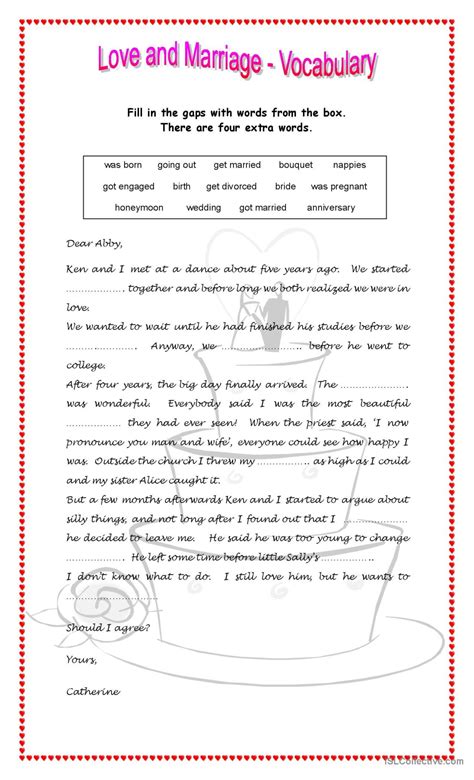 Love and Marriage - Vocabulary
Fill in the gaps with words from the box.
There are four extra words.
was born going out get married bouquet nappies
got engaged birth get divorced bride was pregnant
honeymoon wedding got married anniversary
Dear Abby,
Ken and I met at a dance about five years ago. We started
………………… together and before long we both realized we were in
love.
We wanted to wait until he had finished his studies before we
………………… . Anyway, we ………………… .. before he went to
college.
After four years, the big day finally arrived. The …………………
was wonderful. Everybody said I was the most beautiful
………………… they had ever seen! When the priest said, ‘I now
pronounce you man and wife’, everyone could see how happy I
was. Outside the church I threw my ………………… as high as I could
and my sister Alice caught it.
But a few months afterwards Ken and I started to argue about
silly things, and not long after I found out that I …………………
he decided to leave me. He said he was too young to change
………………… . He left some time before little Sally’s ………………… .
I don’t know what to do. I still love him, but he wants to
………………… .
Should I agree?
Yours,
Catherine
iSLCollective.com